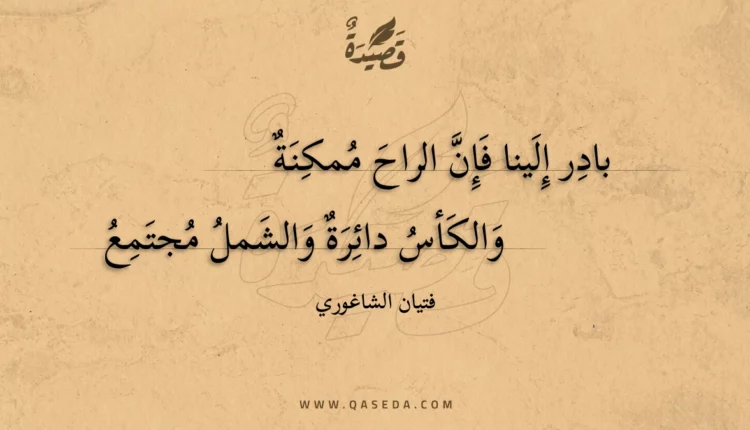 قَصِيْدَةٌ
بادِر إِلَينا فَإِنَّ الراحَ مُمكِنَةٌ
وَالكَأسُ دائِرَةٌ وَالشَملُ مُجتَمِعُ
فتيان الشاغوري
WWW.QASEDA.COM